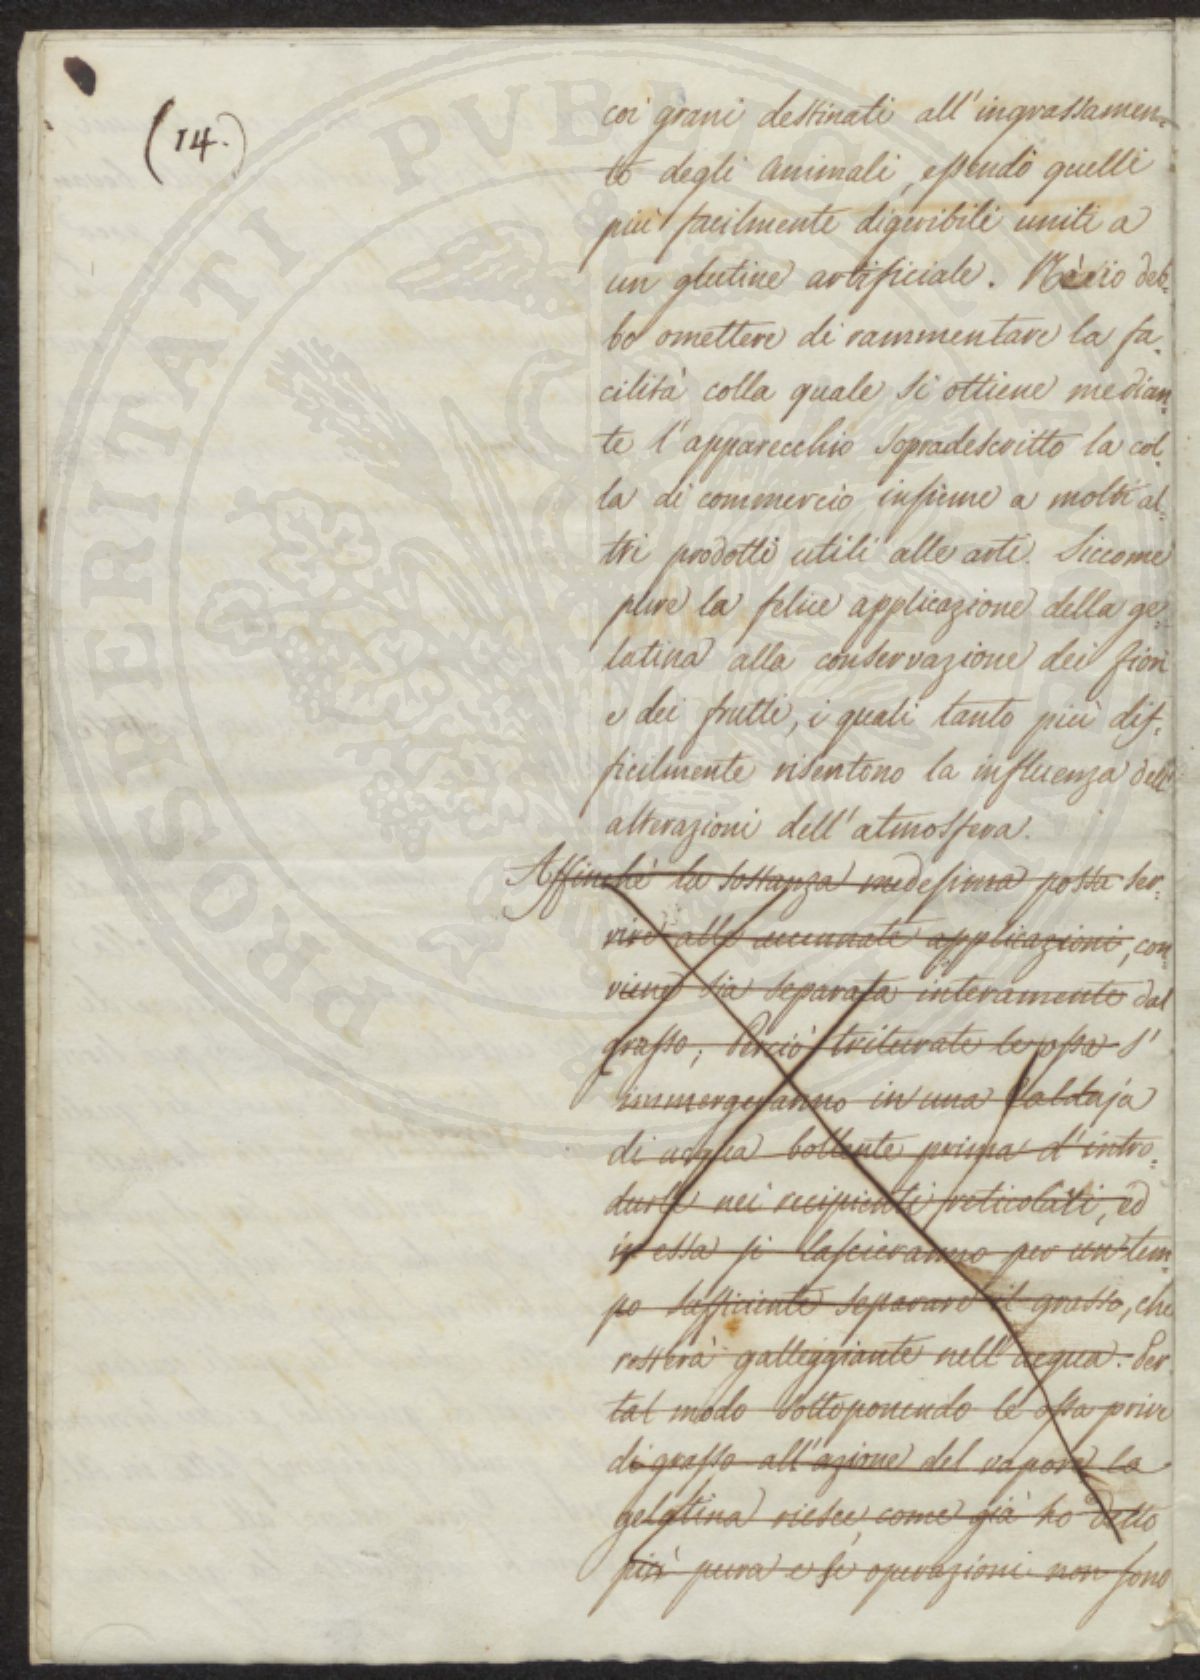 (14.)
coi grani destinati all'ingrassamen=
to degli animali, essendo quelli
più facilmente digeribili uniti a
un glutine artificiale. Nè io deb=
bo omettere di rammentare la fa=
cilità colla quale si ottiene median=
te l'apparecchio sopradescritto la col=
la di commercio insieme a molti al=
tri prodotti utili alle arti. Siccome
pure la felice applicazione della ge=
latina alla conservazione dei fiori
e dei frutti, i quali tanto più dif=
ficilmente risentono la influenza dell'
alterazioni dell'atmosfera.
Affinchè la sostanza medesima possa ser=
vire alle accennate applicazioni, con=
viene sia separata interamente dal
grasso; Perciò triturate le ossa s'
immergeranno in una Caldaja
di acqua bollente prima d'intro=
durle nei recipienti reticolati, ed
in essa si lascieranno per un tem=
po sufficiente separare il grasso, che
resterà galleggiante nell'acqua. Per
tal modo sottoponendo le ossa prive
di grasso all'azione del vapore la
gelatina riesce, come già ho detto
più pura e le operazioni non sono
PROSPERITATI PUBLICAE